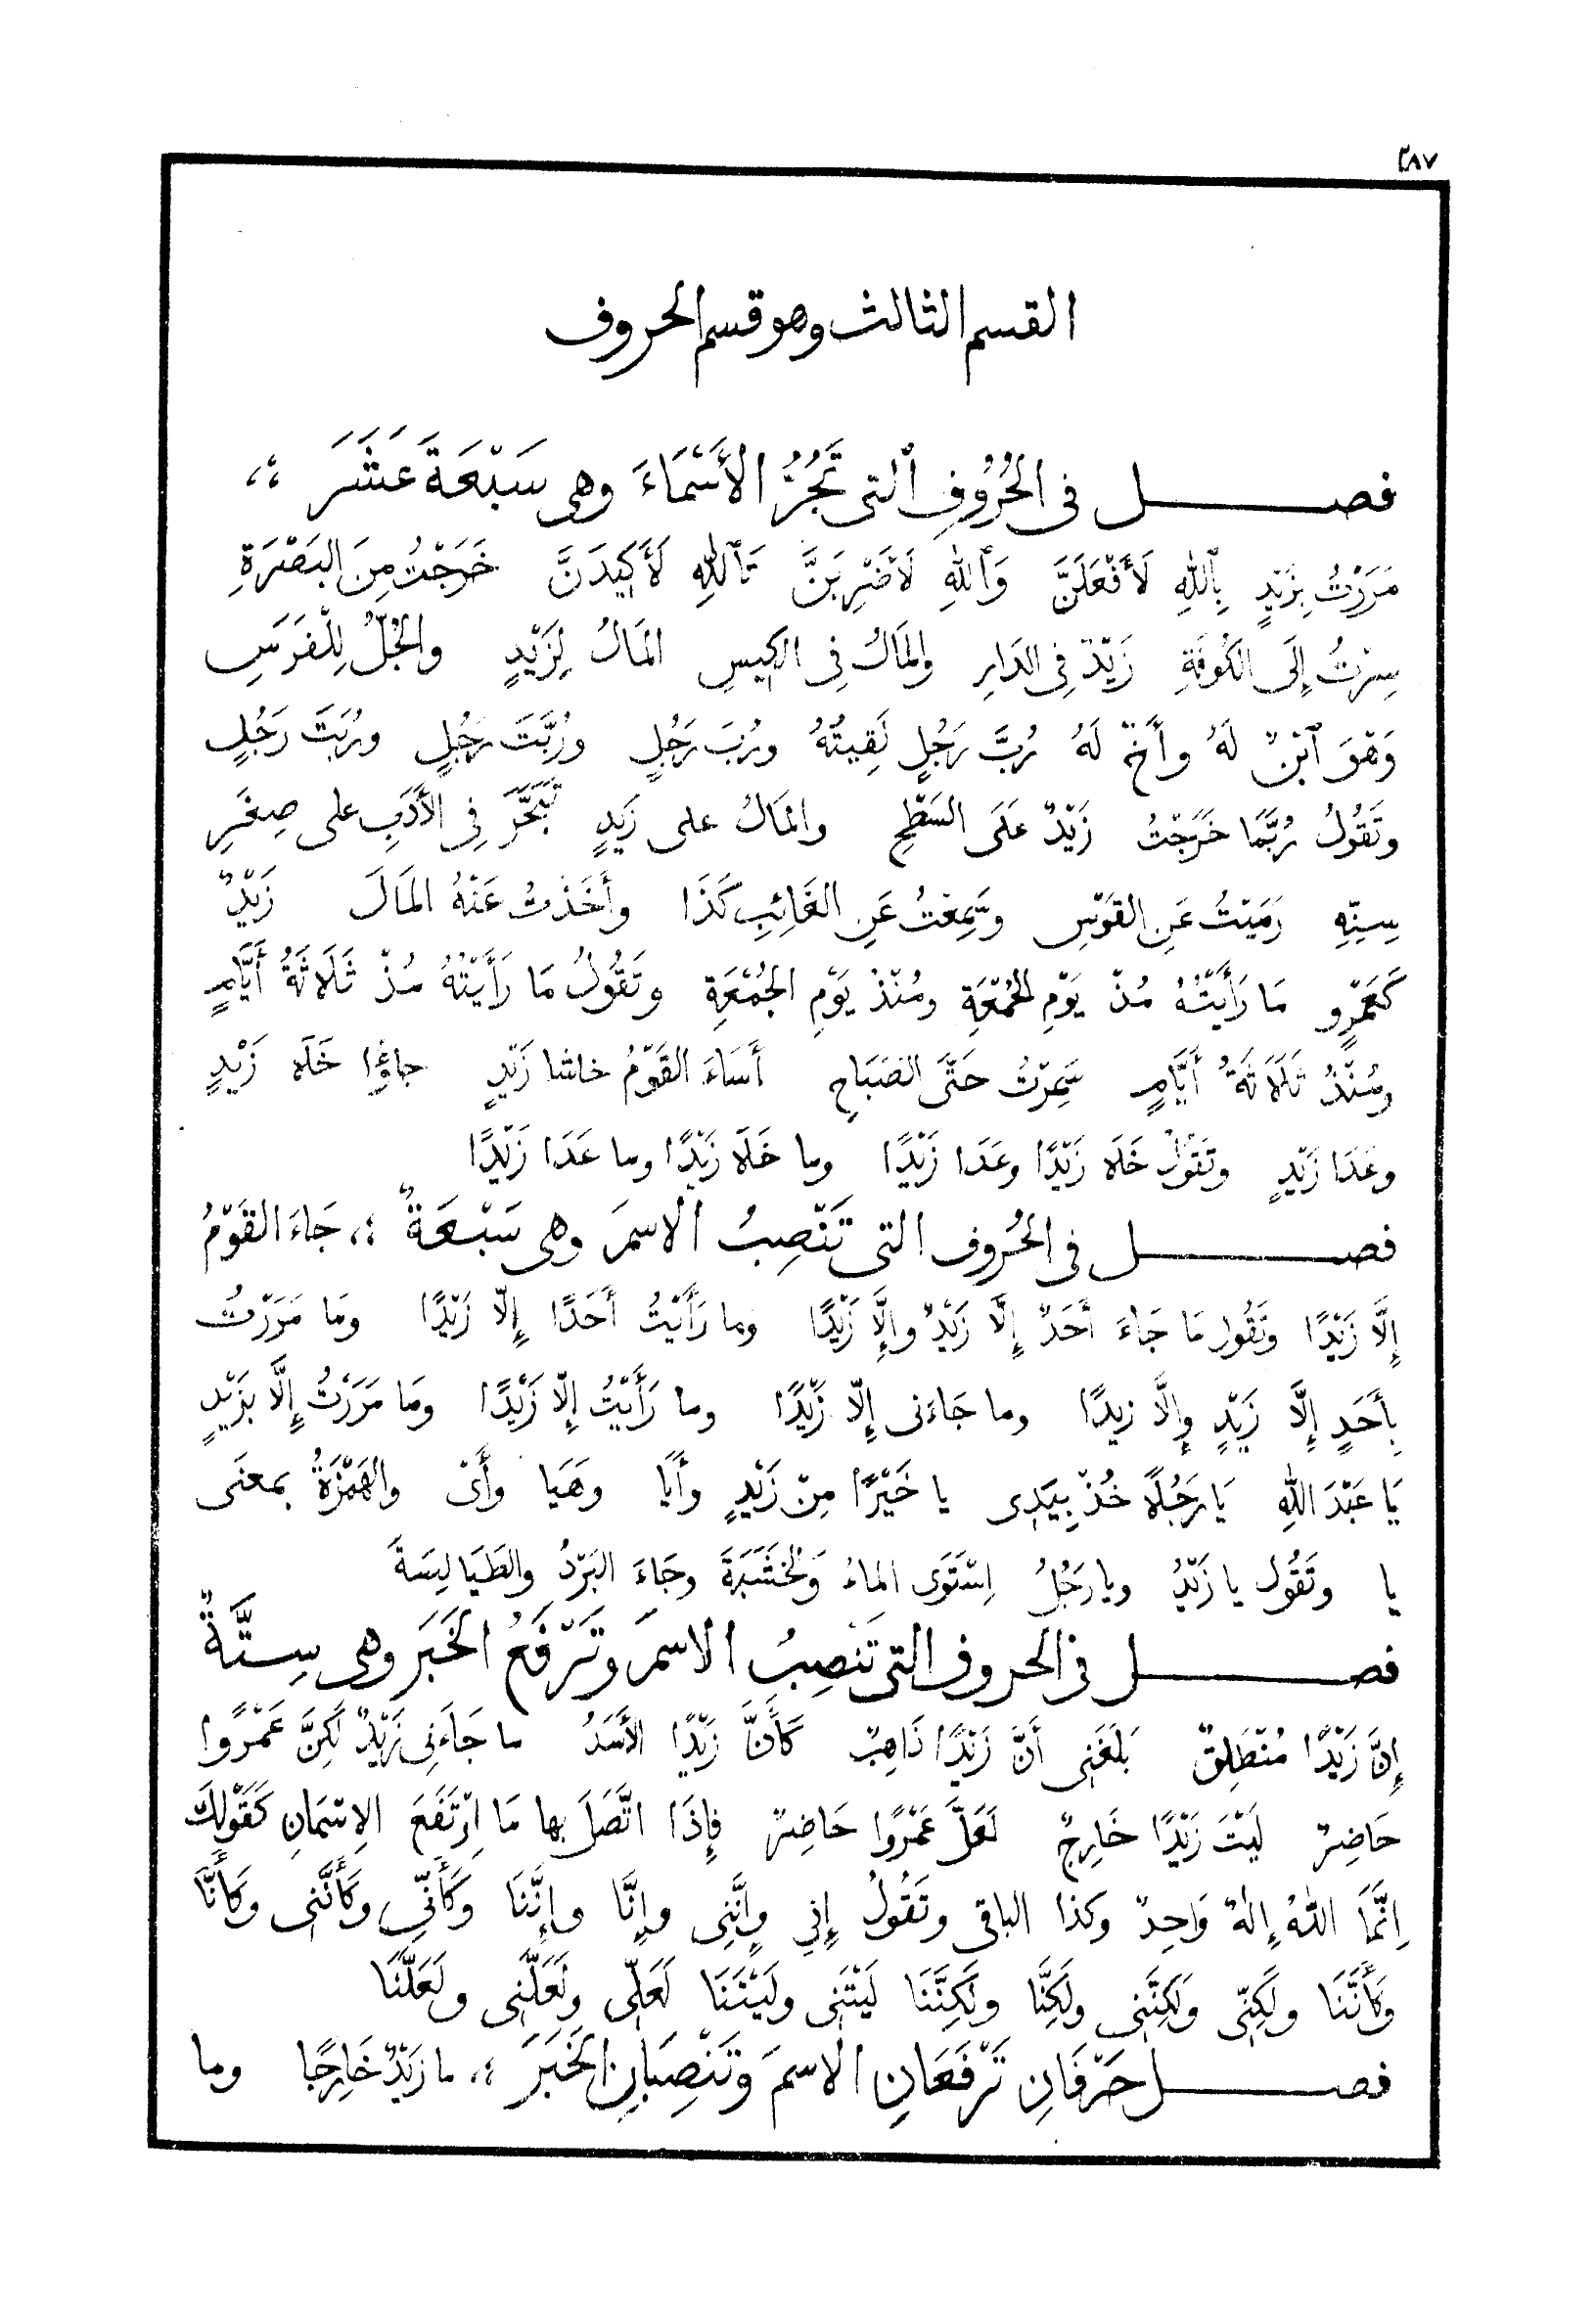 ٢٨٧
القسم الثالث وهو قسم الحروف
فصل في الحُرُوفِ ٱلتي تَجُرُّ الأَسْمَاءَ وهي سَبْعَةَ عَشَرَ ؛،
مَرَرْتُ بِزَيْدٍ بِٱللهِ لَأَفْعَلَنَّ وَٱللهِ لَأَضْرِبَنَّ تَٱللهِ لَأَكِيدَنَّ خَرَجْتُ مِنَ البَصْرَةِ
سِرْتُ إِلَى الكُوفَةِ زَيْدٌ فِي الدَارِ والمَالُ فِي الكِيسِ المَالُ لِزَيْدٍ والجُلُّ لِلْفَرَسِ
وَهْوَ ٱبْنٌ لَهُ وأَخٌ لَهُ رُبَّ رَجُلٍ لَقِيتُهُ ورُبَ رَجُلٍ ورُبَّتَ رَجُلٍ ورُبَتَ رَجُلٍ
وتَقُولُ رُبَّمَا خَرَجْتُ زَيْدٌ عَلَى السَطْحِ والمَالُ على زَيْدٍ تَبَحَّرَ فِي الأَدَبِ على صِغَرِ
سِنِّهِ رَمَيْتُ عَنِ القَوْسِ وسَمِعْتُ عَنِ الغَائِبِ كَذَا وأَخَذْتُ عَنْهُ المَالَ زَيْدٌ
كَعَمْرٍو مَا رَأَيْتُهُ مُذْ يَوْمِ الجُمْعَةِ ومُنْذُ يَوْمِ الجُمْعَةِ وتَقُولُ مَا رَأَيْتُهُ مُذْ ثَلَاثَةُ أَيَّامٍ
ومُنْذُ ثَلَاثَةُ أَيَّامٍ سَمِرْتُ حَتَّى الصَبَاحِ أَسَاءَ القَوْمُ حاشا زَيْدٍ جاؤُا خَلَا زَيْدٍ
وعَدَا زَيْدٍ وتَقُولُ خَلَا زَيْدًا وعَدَا زَيْدًا وما خَلَا زَيْدًا وما عَدَا زَيْدًا
فصل في الحُرُوف التي تَنْصِبُ الاسمَ وهي سَبْعَةٌ ؛، جَاءَ القَوْمُ
إِلَّا زَيْدًا وتَقُول مَا جَاءَ أَحَدٌ إِلَّا زَيْدٌ وإِلَّا زَيْدًا وما رَأَيْتُ أَحَدًا إِلَّا زَيْدًا وَمَا مَرَرْتُ
بِأَحَدٍ إِلَّا زَيْدٍ وإِلَّا زيدًا وما جَاءَنى إِلّا زَيْدًا وما رَأَيْتُ إِلّا زَيْدًا وَمَا مَرَرْتُ إِلَّا بِزَيْدٍ
يَا عَبْدَ اللهِ يَا رَجُلًا خُذْ بِيَدِى يا خَيْرًا مِنْ زَيْدٍ وأَيَا وهَيَا وأَىْ والهَمْزَةُ بمعنَى
يا وتَقُول يا زَيْدُ ويا رَجُلُ اِسْتَوَى الماءُ وَالخَشَبَةَ وجَاءَ البَرْدُ والطَيَالِسَةَ
فصل في الحروف التي تَنْصِبُ الاسمَ وتَرْفَعُ الخَبَرَ وهي سِتَّةٌ
إِنَّ زَيْدًا مُنْطَلِقٌ بَلَغَنِى أَنَّ زَيْدًا ذَاهِبٌ كَأَنَّ زَيْدًا الأَسَدُ ما جَاءَنِى زَيْدٌ لَكِنَّ عَمْرًوا
حَاضِرٌ لَيْتَ زَيْدًا خَارِجٌ لَعَلَّ عَمْرًوا حَاضِرٌ فإِذَا اتَّصَلَ بها مَا اِرْتَفَعَ الاِسْمَانِ كَقَوْلِكَ
اِنَّمَا اللهُ إِلهٌ وَاحِدٌ وكذا الباقى وتَقُولُ إِنِّي وإِنَّنِى وإِنَّا وإِنَّنَا وكَأَنِّي وكَأَنَّنِى وكَأَنَّا
وكَأَنَّنَا ولَكِنِّى ولَكِنَّنِى ولَكِنَّا ولَكِنَّنَا لَيْتَنِى ولَيْتَنَا لَعَلِّى ولَعَلَّنِى ولَعَلَّنَا
فصل حَرْفَانِ تَرْفَعَانِ الاسمَ وتَنْصِبَانِ الخَبَرَ ؛، ما زَيْدٌ خَارِجًا وما